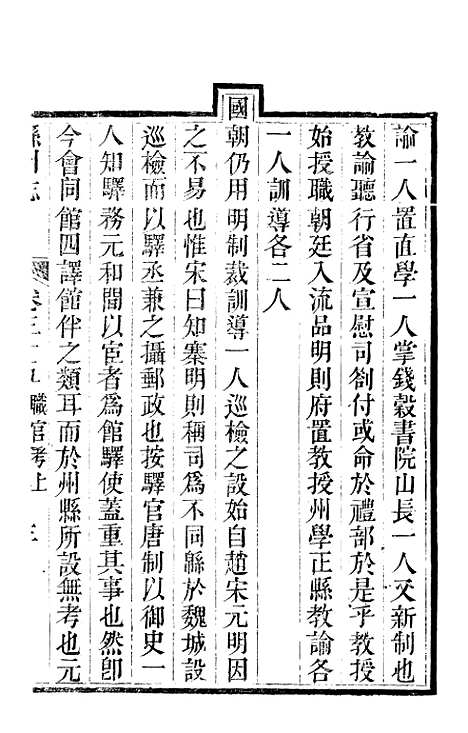 諭一人置直學一人掌錢穀書院山長一人又新制也
教諭聽行省及宣慰司劄付或命於禮部於是乎教授
始授職朝廷入流品明則府置教授州學正縣教諭各
一人訓導各二人
國朝仍用明制裁訓導一人巡檢之設始自趙宋元明因
之不易也惟宋曰知寨明則稱司爲不同緜於魏城設
巡檢而以驛丞兼之攝郵政也按驛官唐制以御史一
人知驛務元和閒以宦者爲館驛使蓋重其事也然卽
今會同館四譯館伴之類耳而於州縣所設無考也元
職官考上